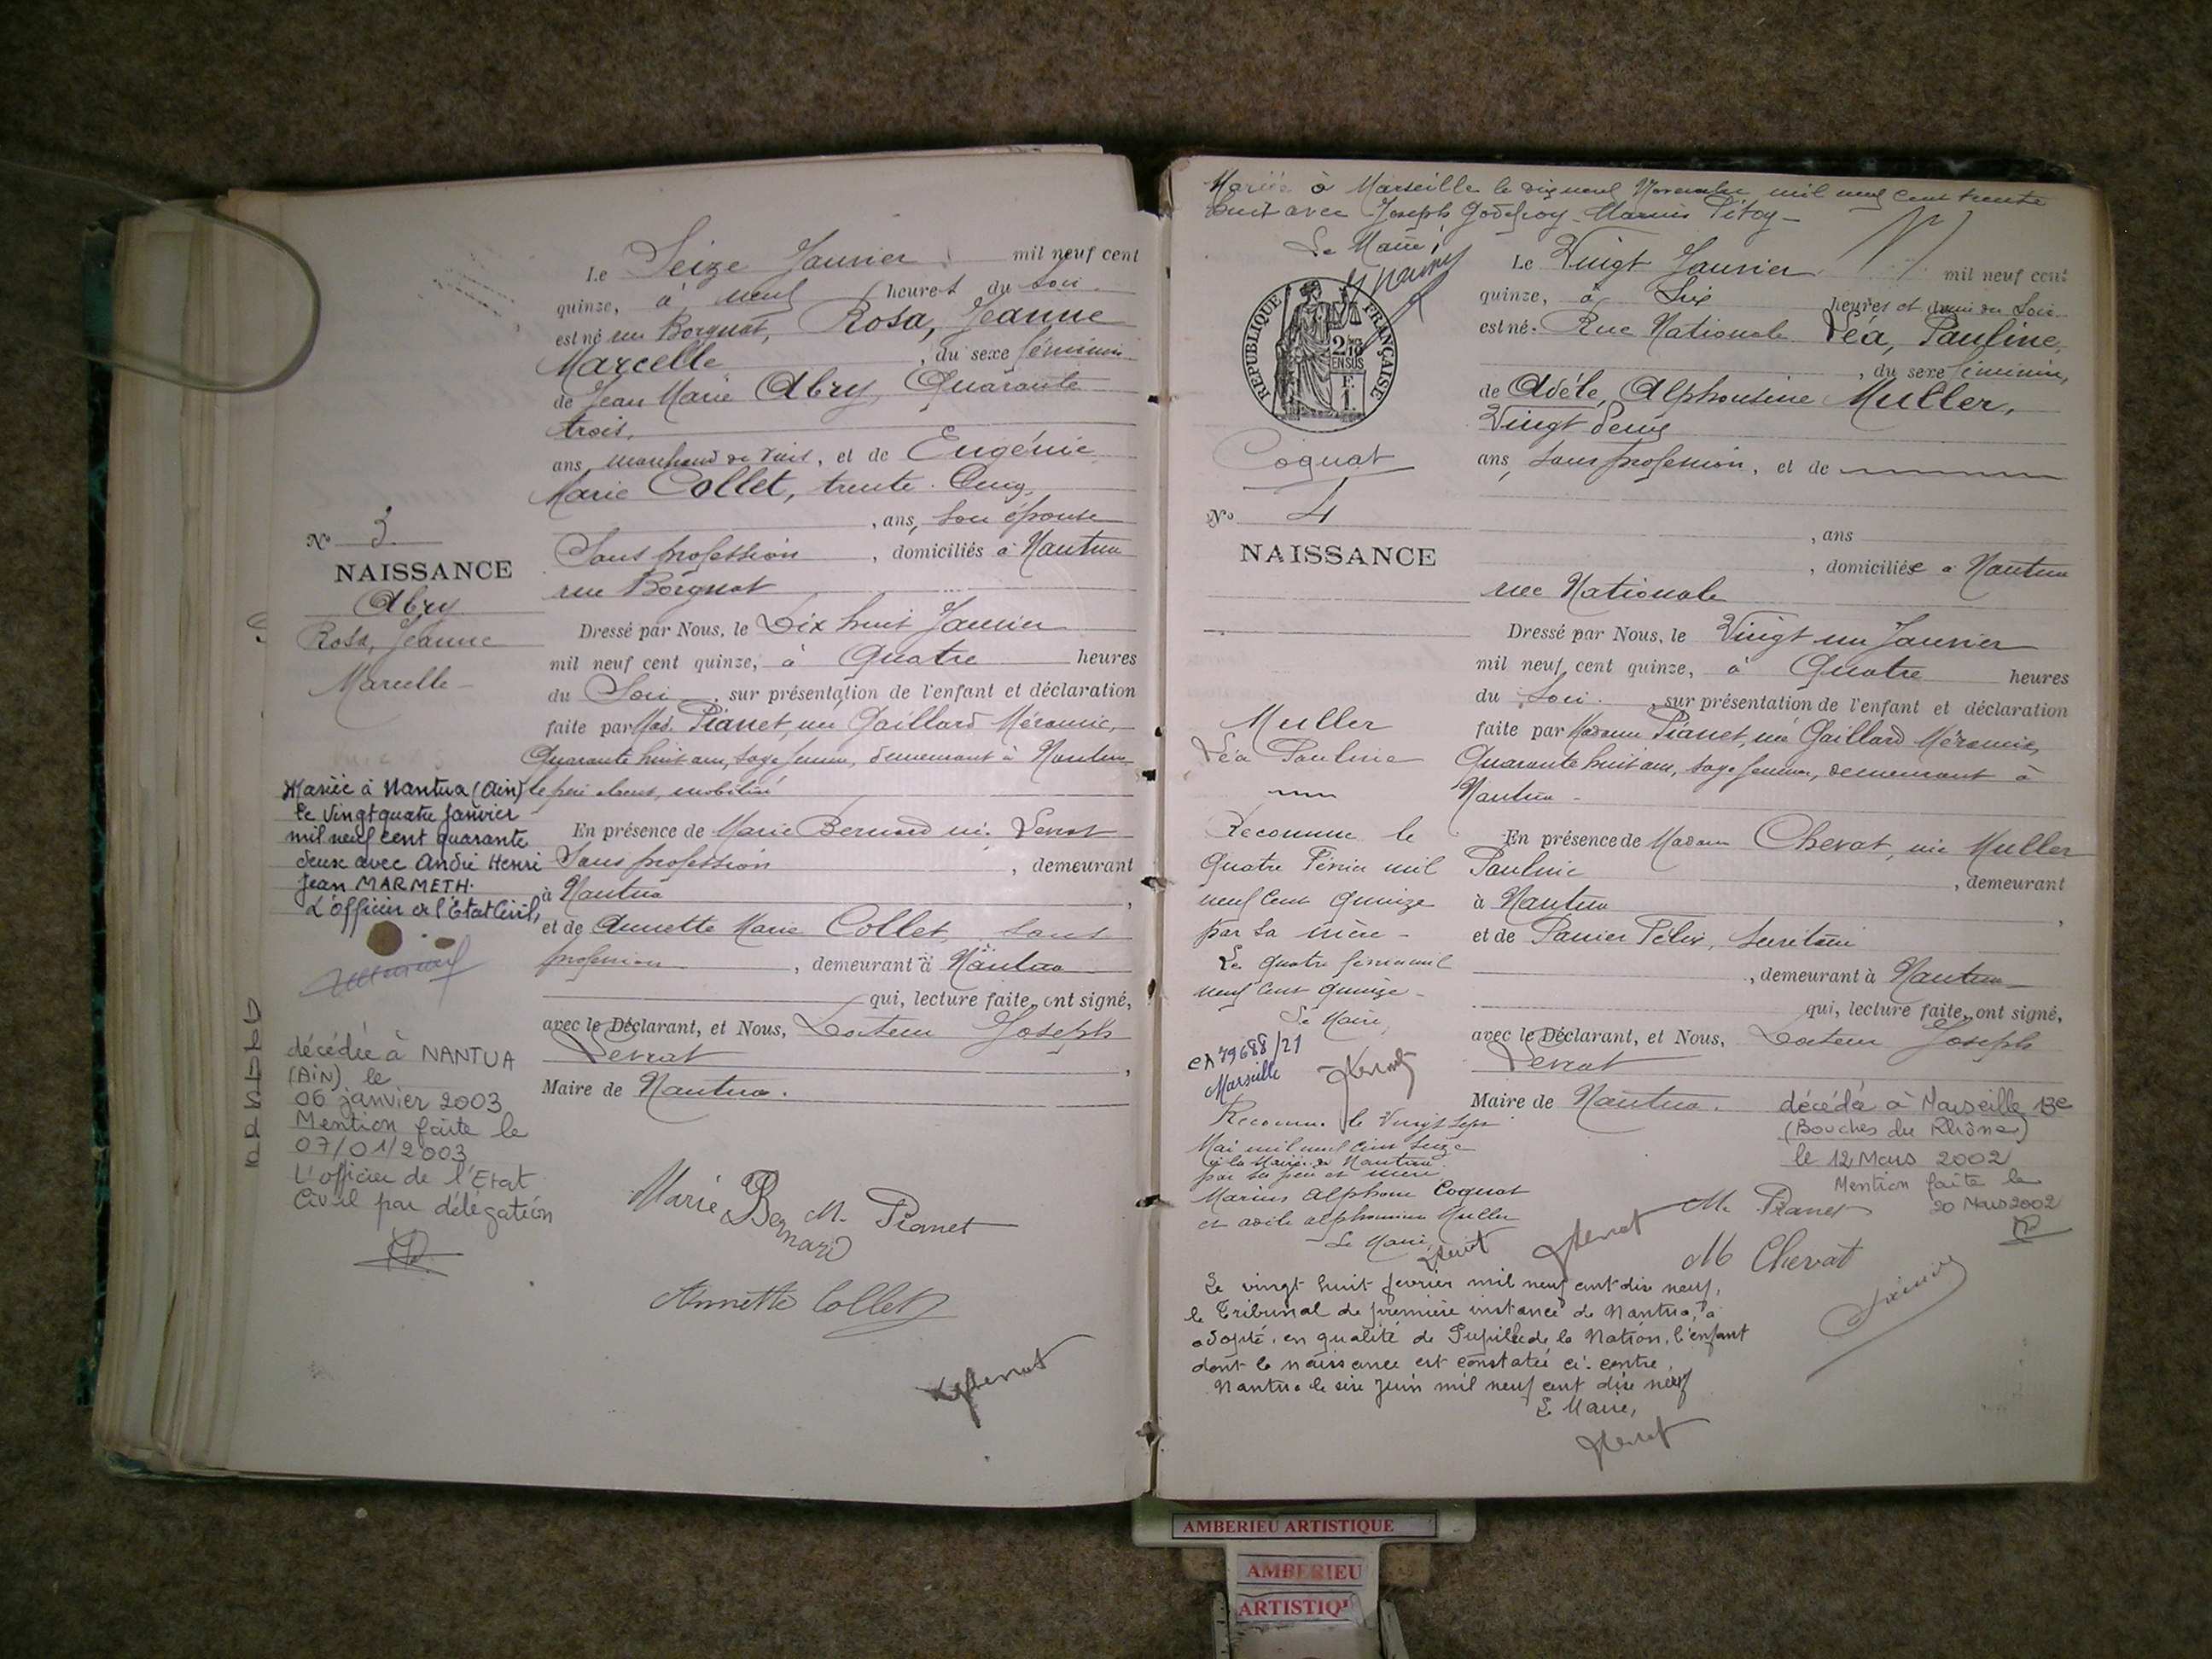 Le Seize Janvier mil neuf cent
quinze, à neuf heures du soir
est né rue Borgnat, Rosa, Jeanne
Marcelle, du sexe féminin
de Jean Marie Abry, Quarante
trois,
ans, marchand de vins, et de Eugénie
Marie Collet, trente cinq
, ans, son épouse
Sans profession, domiciliés à Nantua
rue Borgnat
Dressé par Nous, le Dix huit Janvier
mil neuf cent quinze, à Quatre heures
du Soir, sur présentation de l'enfant et déclaration
faite par Mad. Pianet, née Gaillard
Quarante huit ans, sage femme, demeurant à Nantua
le père absent, mobilisé
En présence de Marie Bernard née
Sans profession, demeurant
à Nantua,
et de Annette Marie Collet, sans
profession, demeurant à Nantua
qui, lecture faite, ont signé,
avec le Déclarant, et Nous, Docteur Joseph
Levrat,
Maire de Nantua.
No 3
NAISSANCE
Abry
Rosa, Jeanne
Marcelle
Mariée à Nantua (Ain)
le vingt quatre Janvier
mil neuf cent quarante
deux avec André Henri
Jean MARMETH.
L'officier de l'Etat Civil,
décédée à NANTUA
(AIN) le
06 janvier 2003
Mention faite le
07/01/2003
L'officier de l'Etat
Civil par délégation
Marie Bernard
M. Pianet
Annette Collet
Mariée à Marseille le dix neuf Novembre mil neuf cent trente
huit avec Joseph Godefroy Marius
Le Maire,
REPUBLIQUE FRANÇAISE
Le Vingt Janvier mil neuf cent
quinze, à Six heures et demi du Soir
est né. Rue Nationale Léa, Pauline
, du sexe féminin,
de Adèle, Alphonsine Muller,
Vingt deux
ans, sans profession, et de
, ans
, domiciliée à Nantua
rue Nationale
Dressé par Nous, le Vingt un Janvier
mil neuf cent quinze, à Quatre heures
du Soir, sur présentation de l'enfant et déclaration
faite par Madame Pianet, née Gaillard
Quarante huit ans, sage femme, demeurant à
Nantua
En présence de Madame Chevat, née Muller
Pauline, demeurant
à Nantua,
et de Félix, Secrétaire
, demeurant à Nantua
qui, lecture faite, ont signé,
avec le Déclarant, et Nous, Docteur Joseph
Levrat
Maire de Nantua.
Coquat
No 4
NAISSANCE
Muller
Léa Pauline
Reconnue le
Quatre Février mil
neuf cent quinze
par sa mère
Le quatre février mil
neuf cent quinze
Le Maire,
Marseille
Reconnue le vingt sept
Mai mil neuf cent seize
à la Mairie de Nantua
par ses père et mère
Marius Alphonse Coquat
et Adèle Alphonsine Muller
Le Maire,
décédée à Marseille 13e
(Bouches du Rhône)
le 12 Mars 2002
Mention faite le
20 Mars 2002
M. Pianet
M Chevat
Le vingt huit février mil neuf cent dix neuf,
le Tribunal de première instance de Nantua, a
adopté, en qualité de Pupille de la Nation, l'enfant
dont la naissance est constatée ci-contre.
Nantua le six Juin mil neuf cent dix neuf
Le Maire,
AMBERIEU ARTISTIQUE
AMBERIEU
ARTISTIQU